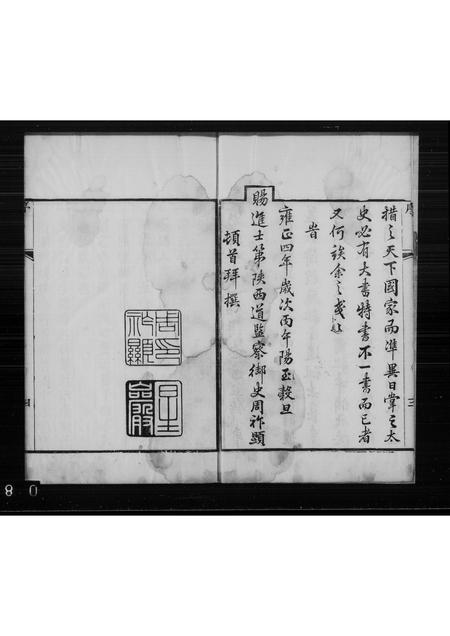 序
措之天下國家而準異日掌之太
史必有大書特書不一書而已者
又何詼余之戔
旹
雍正四年歲次丙午陽正穀旦
賜進士第陝西道監察御史周祚顯
頓首拜撰
周印祚顯
三
08